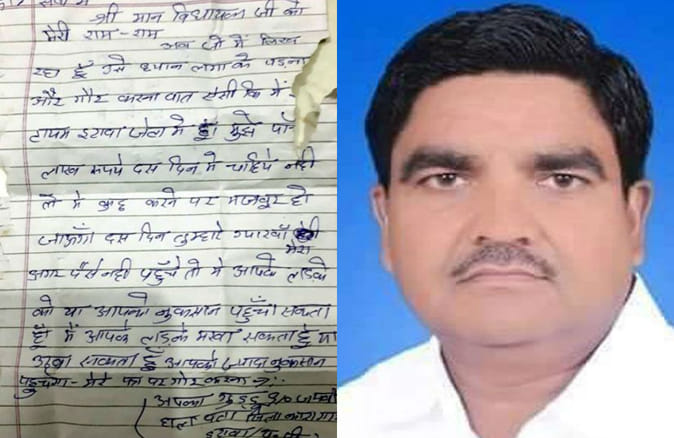 सेवा में
श्री मान विधायक जी को
मेरी राम-राम
अब जो में लिख
रहा हूँ उसे ध्यान लगा के पड़ना
और गौर करना बात ऐसी कि में
टायम इटावा जेल मे हूं। मुझे पाँ
लाख रूपये दस दिन मे चाहिये नही
तो मे कुछ करने पर मजबूर हो
जाऊँगा दस दिन तुम्हारे ग्यारवाँ मेरा
अगर पैसे नही पहुँचे तो मे आपके लडके
को या आपको नुकसान पहुँचा सकता
हूँ मैं आपके लडके मरवा सकता हूं या
उठवा सकता हूँ आपको ज्यादा नुकसान
पहुचेगा- मेरे पर गोर करना
आपका गुड्डू S/o
हाल पता जिला कारागा
इटावा